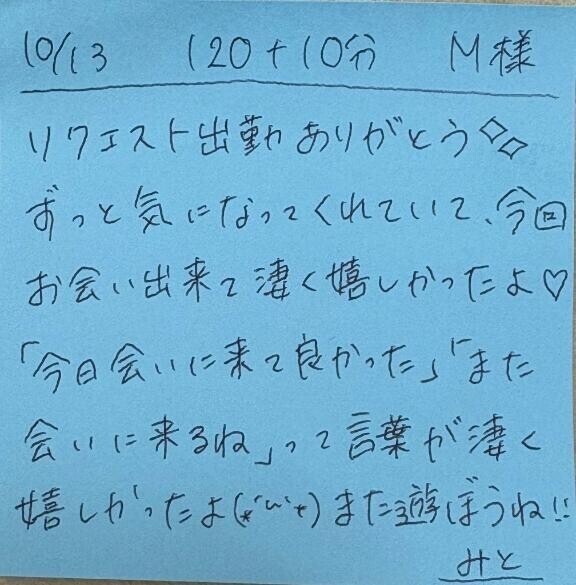 10/13 120+10分 M様
リクエスト出勤ありがとう✧✧
ずっと気になってくれていて、今回
お会い出来て凄く嬉しかったよ♡
「今日会いに来て良かった」「また
会いに来るね」って言葉が凄く
嬉しかったよ(*´ω`*)また遊ぼうね!!
みと